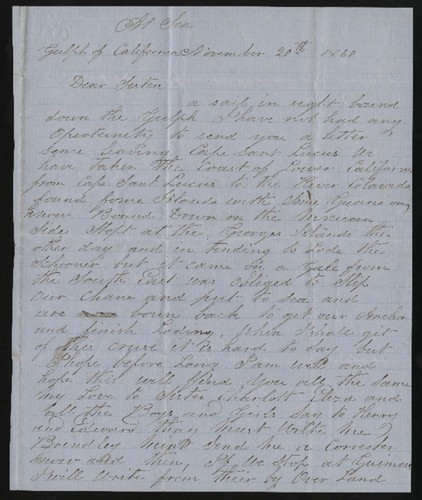 At Sea
Gulph of California November 20th 1860
Dear Sister
a sail in sight bound
down the Gulph I have not had any
Oportunity to send you a letter
sence leaving Cape Sant Lucus We
have taken the Coast of Lower California
from Cape Sant Lucus to the River Colarado
found some Islands with some Guano on
know Bound Down on the Mexican
Side Stopt at the Georges Islands the
other day and in tending to Lode the
Schooner but it came on a Gale from
the South East was obliged to Slip
Our Chane and put to Sea and
are bound back to get our Anchor
and finish Loding, When I shall git
of this cruse it is hard to say but
I hope before Long I am well and
hope this will find You all the same
my Love to Sister Charlott Eliza and
tell the Boys and Girls say to Henry
and Edward they must Write me
Brindley might send me a
know and then, If We Stop at
I will write from their by Over Land